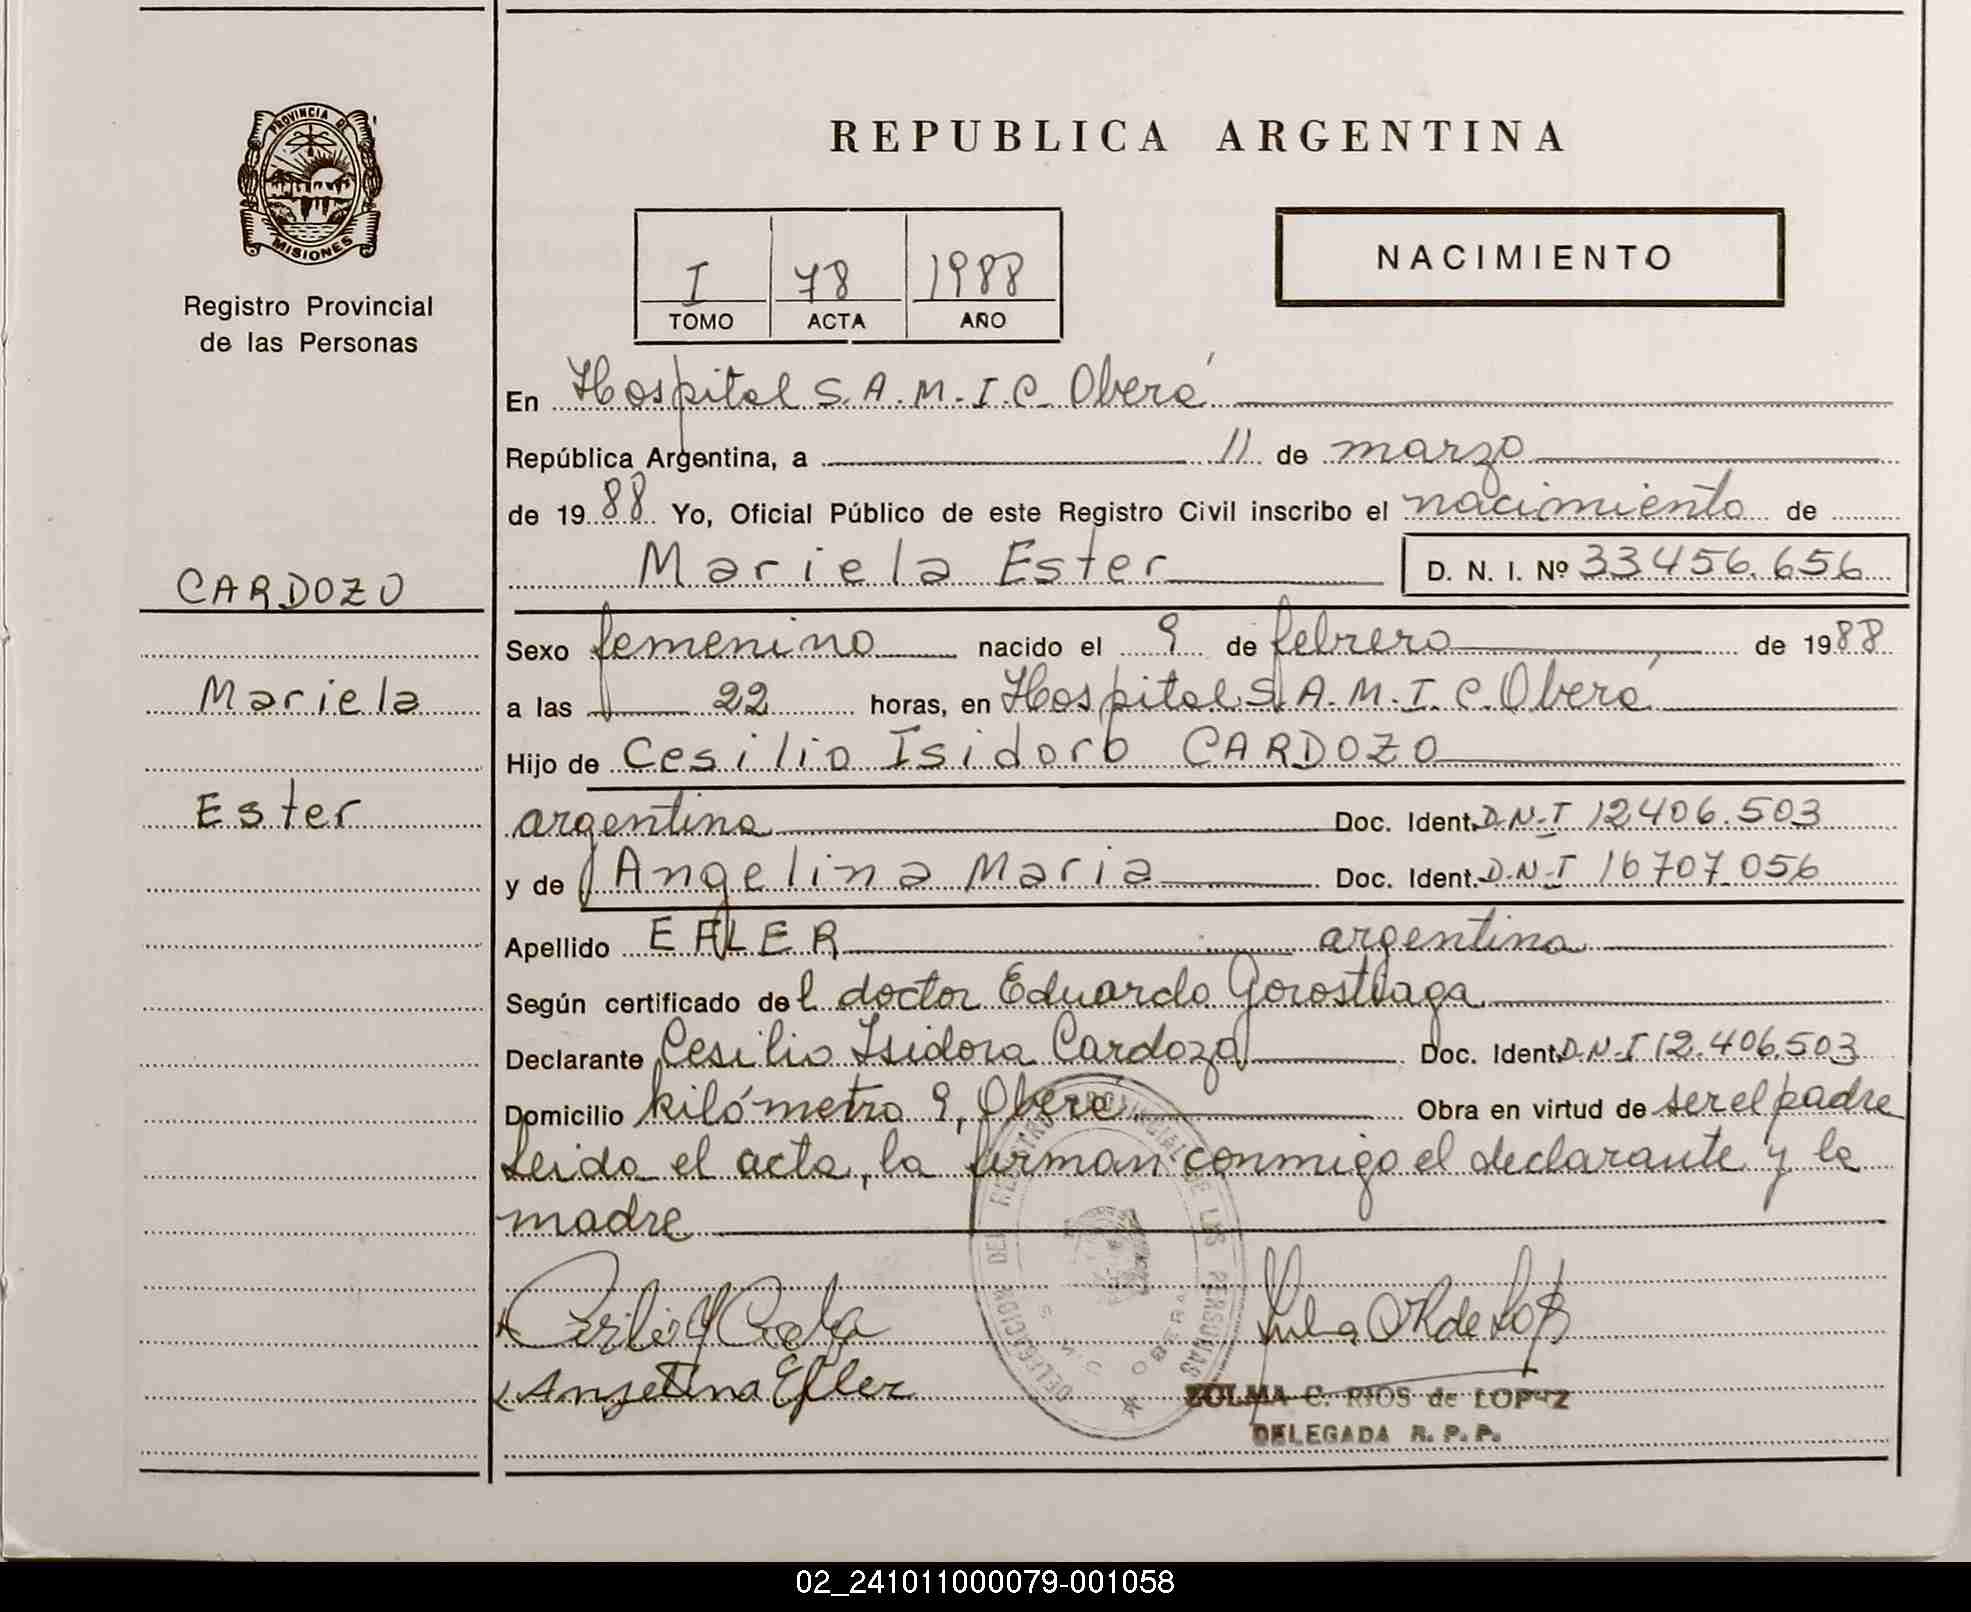 PROVINCIA DE
MISIONES
Registro Provincial
de las Personas
CARDOZO
Mariela
Ester
REPUBLICA ARGENTINA
I 78 1988
TOMO ACTA AÑO
NACIMIENTO
En Hospital S.A.M.I.C. Oberá
República Argentina, a 11 de marzo
de 1988 Yo, Oficial Público de este Registro Civil inscribo el nacimiento de
Mariela Ester D. N. I. Nº 33456.656
Sexo femenino nacido el 9 de febrero de 1988
a las 22 horas, en Hospital S.A.M.I.C. Oberá
Hijo de Cesilio Isidoro CARDOZO
argentina Doc. Ident. D.N.I 12406.503
y de Angelina Maria Doc. Ident. D.N.I 16707.056
Apellido EFLER argentina
Según certificado del doctor Eduardo Gorostiaga
Declarante Cesilio Isidoro Cardozo Doc. Ident. D.N.I 12.406.503
Domicilio kilómetro 9, Oberá Obra en virtud de ser el padre
Leida el acta, la firman conmigo el declarante y la
madre
Angelina Efler
DELEGACION DEL REGISTRO PROVINCIAL DE LAS PERSONAS
OBERA
ZULMA C. RIOS de LOPEZ
DELEGADA R. P. P.
02_241011000079-001058